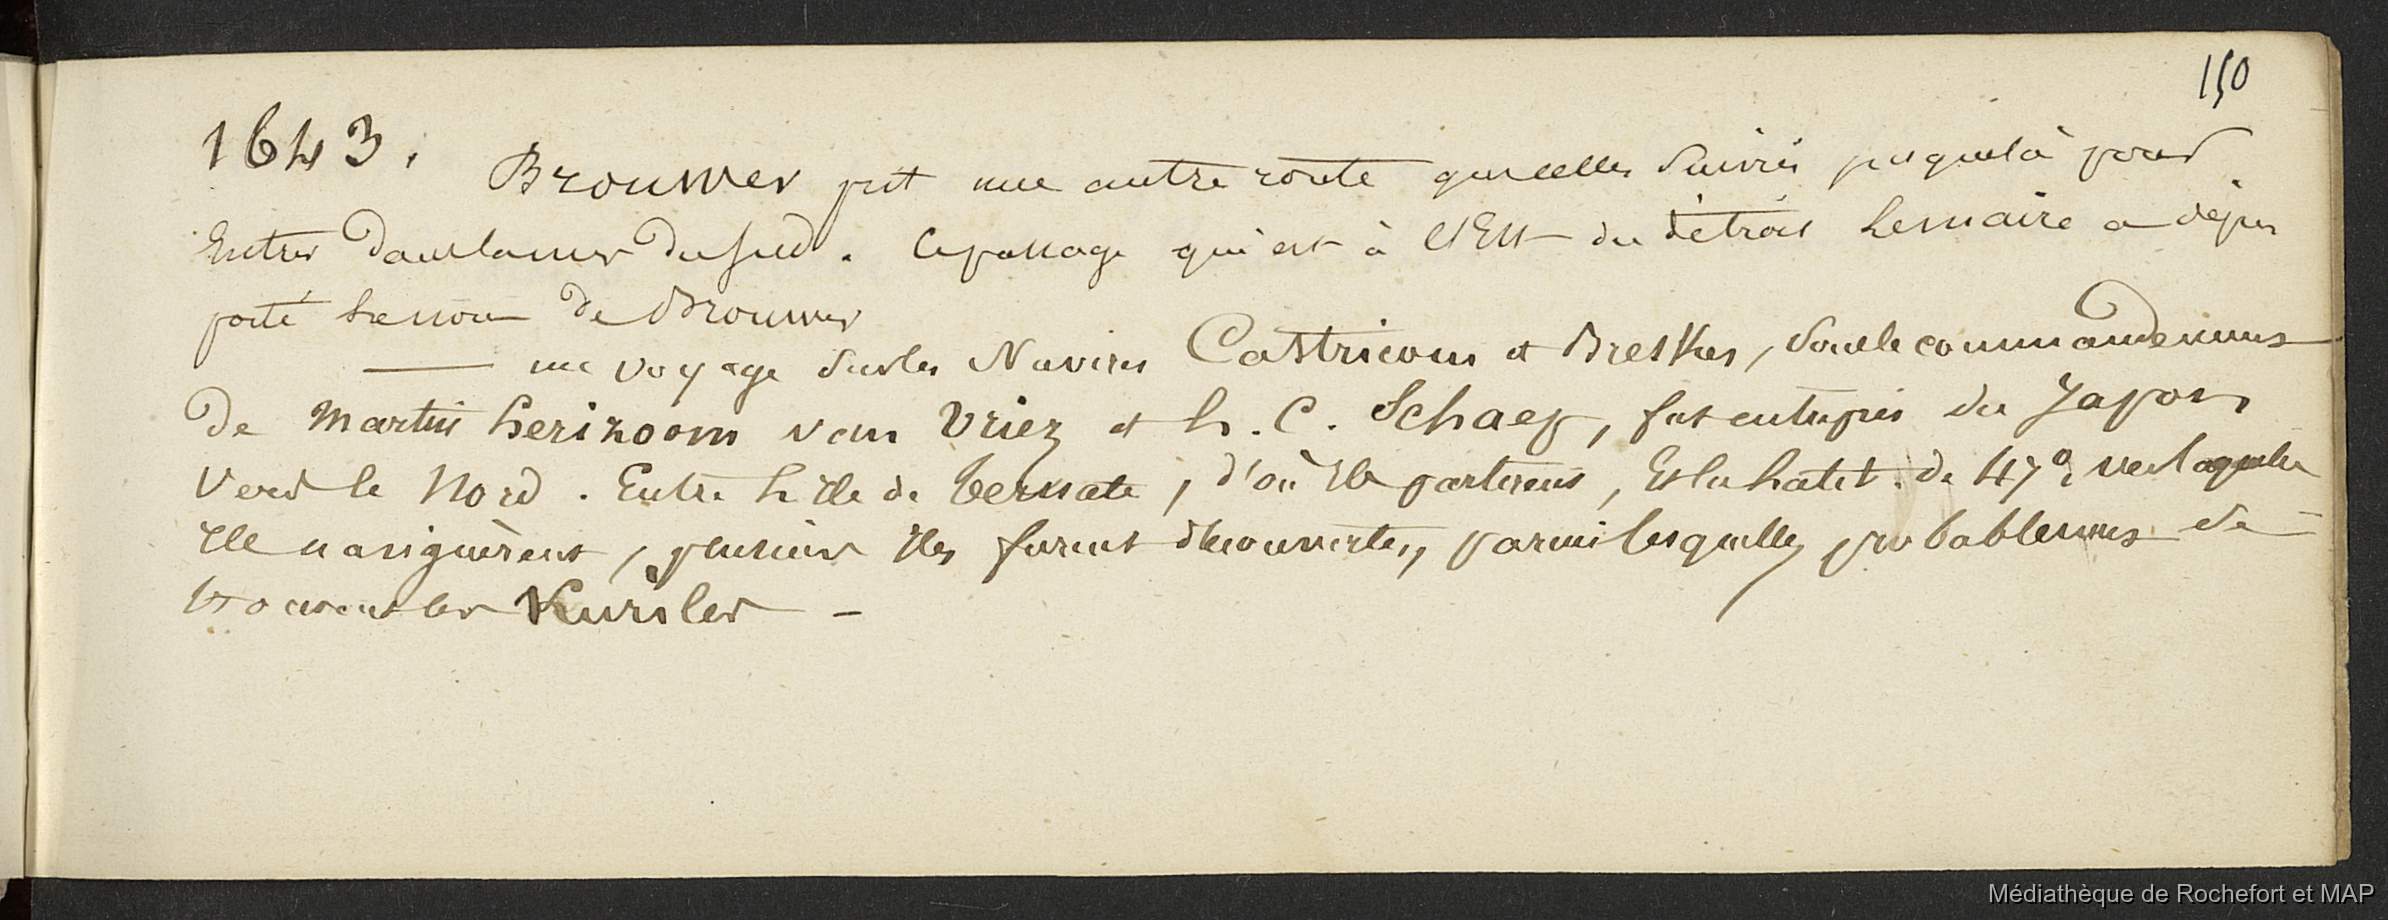 150
1643. Brouwer prit une autre route que celles suivies jusque là pour
Entrer dans la mer du sud. Ce passage qui est à l'Est du détroit Lemaire a depuis
porté le nom de Brouwer
— un voyage sur les Navires Castricom et Breskes, sous le commandement
de Martin herizoom van Vriez et h. C. Schaep, fut entrepris du Japon
vers le Nord. Entre L'Ile de Ternate, d'où Ils partirent, Et la Latit. de 47°, vers laquelle
Ils naviguèrent, plusieurs Iles furent découvertes, parmi lesquelles probablement se
trouvent les Kuriles —
Médiathèque de Rochefort et MAP